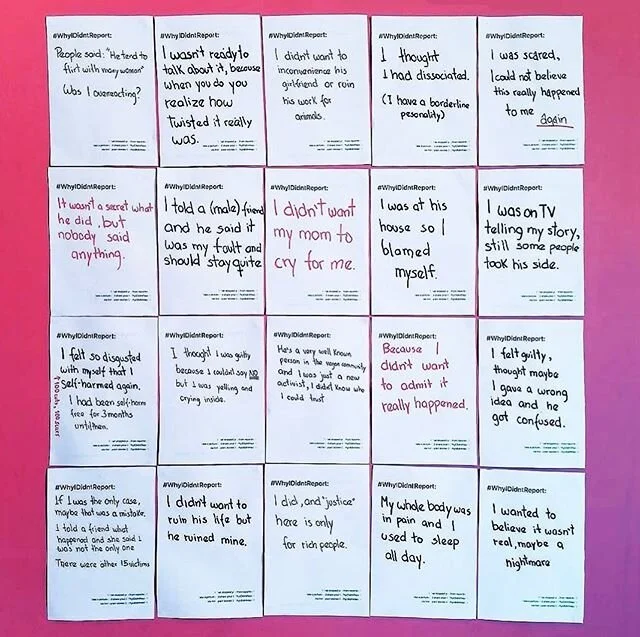 #WhyIDidntReport:
People said: "He tend to
flirt with many woman"
Was I overreacting?
#WhyIDidntReport:
I wasn't ready to
talk about it, because
when you do you
realize how
twisted it really
was.
#WhyIDidntReport:
I didn't want to
inconvenience his
girlfriend or ruin
his work for
animals.
#WhyIDidntReport:
I thought
I had dissociated.
(I have a borderline
pesonality)
#WhyIDidntReport:
I was scared,
I could not believe
this really happened
to me again
#WhyIDidntReport:
It wasn't a secret what
he did, but
nobody said
anything.
#WhyIDidntReport:
I told a (male) friend
and he said it
was my fault and
should stay quite
#WhyIDidntReport:
I didn't want
my mom to
cry for me.
#WhyIDidntReport:
I was at his
house so I
blamed
myself.
#WhyIDidntReport:
I was on TV
telling my story,
still some people
took his side.
#WhyIDidntReport:
I felt so disgusted
with myself that I
self-harmed again.
I had been self-harm
free for 3 months
until then.
#WhyIDidntReport:
I thought I was guilty
because I couldn't say NO
but I was yelling and
crying inside.
#WhyIDidntReport:
He's a very well known
person in the vegan community
and I was just a new
activist, I didn't know who
I could trust
#WhyIDidntReport:
Because I
didn't want
to admit it
really happened.
#WhyIDidntReport:
I felt guilty,
thought maybe
I gave a wrong
idea and he
got confused.
#WhyIDidntReport:
If I was the only case,
maybe that was a mistake.
I told a friend what
happened and she said I
was not the only one
There were other 15 victims
#WhyIDidntReport:
I didn't want to
ruin his life but
he ruined mine.
#WhyIDidntReport:
I did, and "justice"
here is only
for rich people.
#WhyIDidntReport:
My whole body was
in pain and I
used to sleep
all day.
#WhyIDidntReport:
I wanted to
believe it wasn't
real, maybe a
nightmare